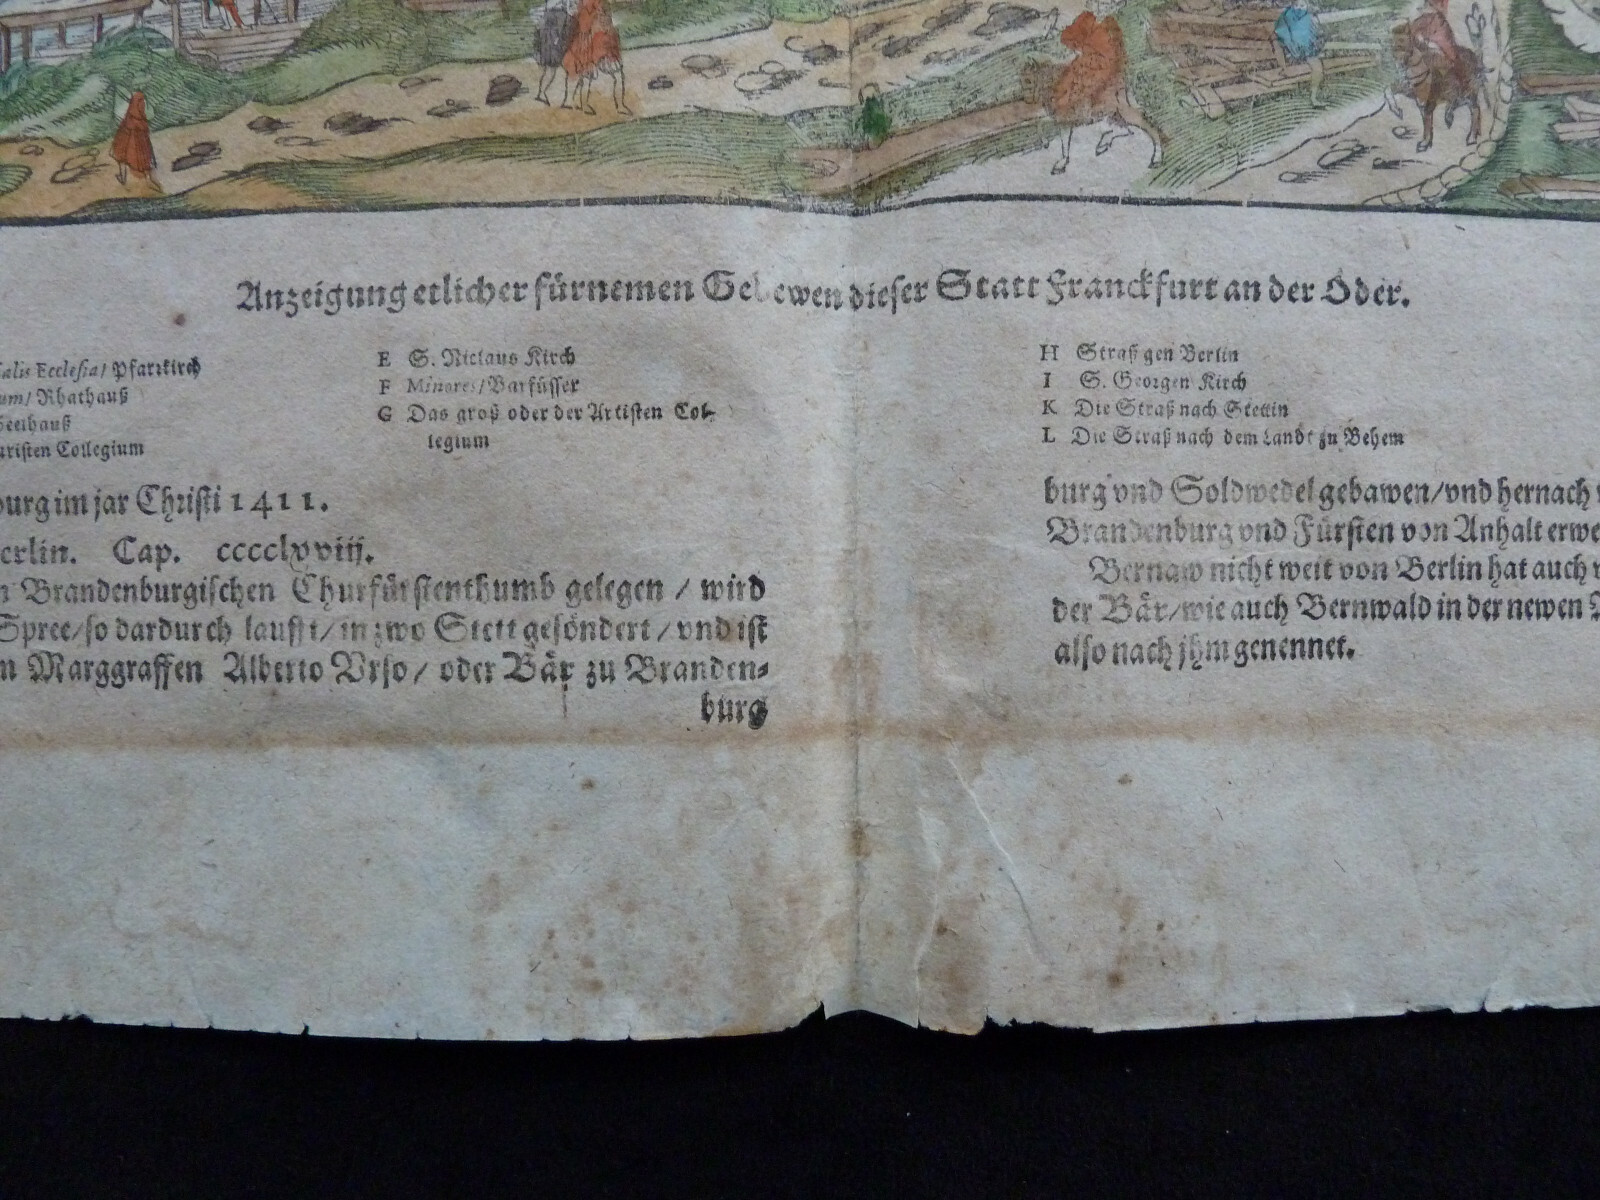 Anzeigung etlicher fürnemen Gebewen dieser Statt Franckfurt an der Oder.
alis Ecclesia/ Pfarrkirch
um/ Rhathauß
risten Collegium
E S. Niclaus Kirch
F Minores/Barfüsser
G Das groß oder der Artisten Col-
legium
H Straß gen Berlin
I S. Georgen Kirch
K Die Straß nach Stettin
L Die Straß nach dem Landt zu Behem
burg im jar Christi 1411.
erlin. Cap. cccclxviij.
n Brandenburgischen Churfürstenthumb gelegen / wird
Spree/so dardurch laufft/in zwo Stett gesöndert/vnd ist
n Marggraffen Alberto Vrso/ oder Bär zu Branden-
burg
burg vnd Soldwedel gebawen/vnd hernach
Brandenburg vnd Fürsten von Anhalt erwe
Bernaw nicht weit von Berlin hat auch
der Bär/wie auch Bernwald in der newen
also nach jhm genennet.